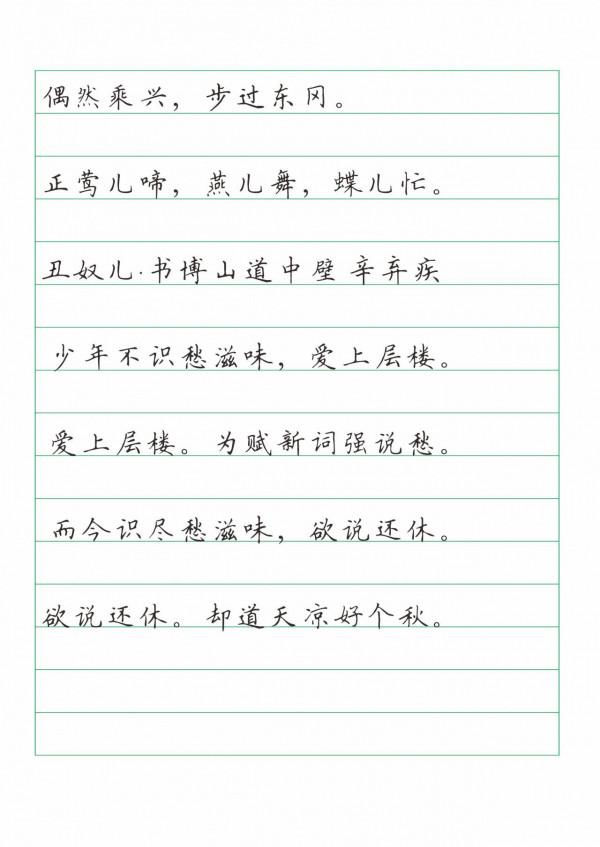 偶然乘兴，步过东冈。
正莺儿啼，燕儿舞，蝶儿忙。
丑奴儿·书博山道中壁 辛弃疾
少年不识愁滋味，爱上层楼。
爱上层楼。为赋新词强说愁。
而今识尽愁滋味，欲说还休。
欲说还休。却道天凉好个秋。